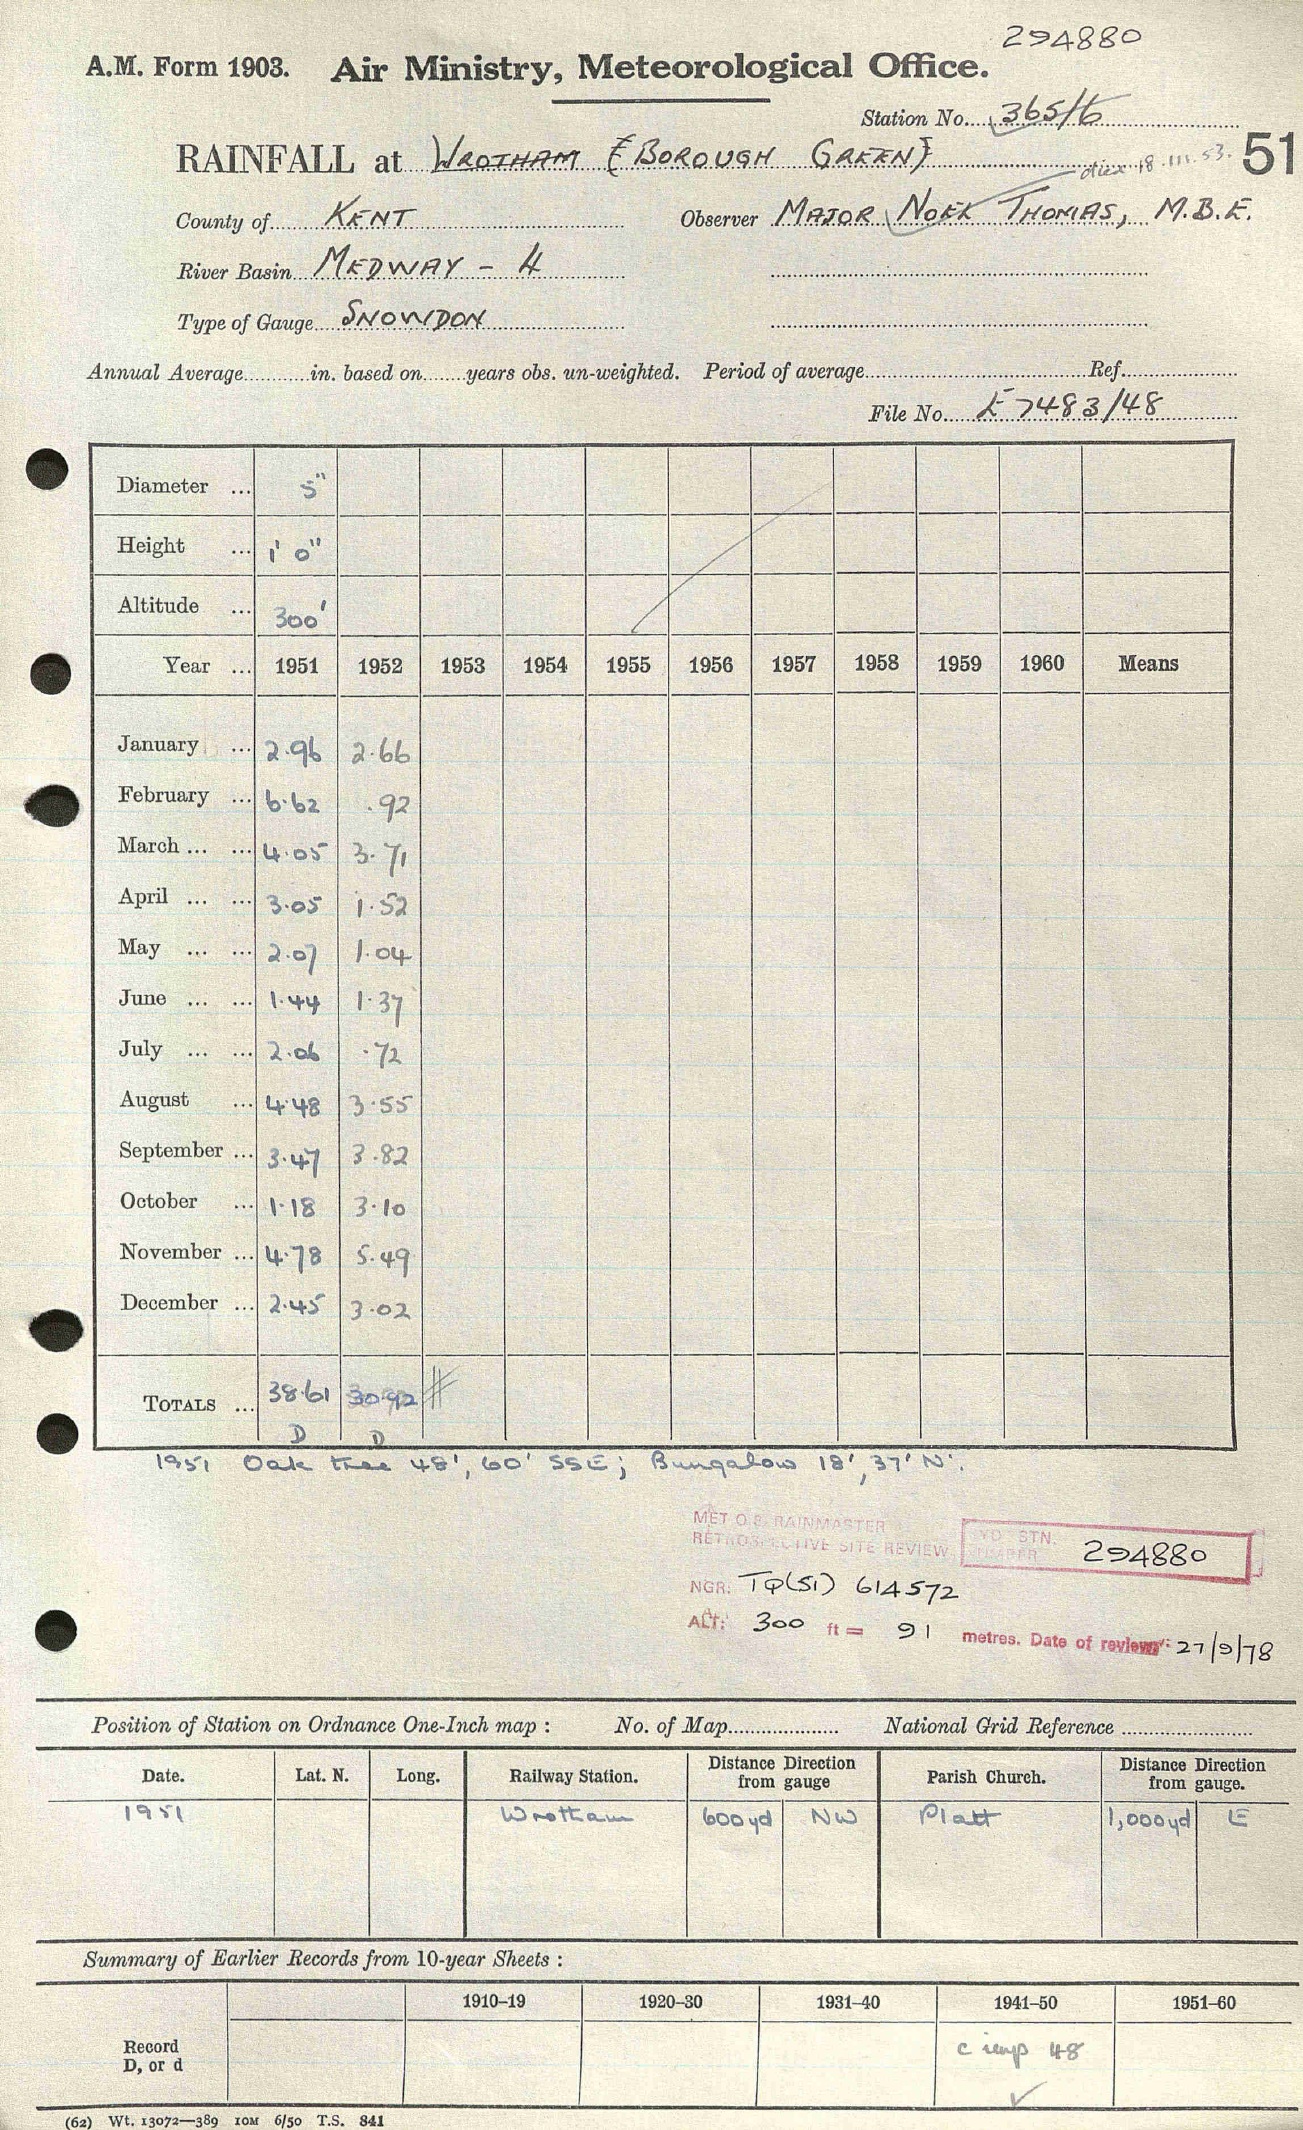 294880
A.M. Form 1903. Air Ministry, Meteorological Office.
Station No. 365/6
RAINFALL at WROTHAM {BOROUGH GREEN} 18.III.53. 51
County of KENT Observer MAJOR NOEL THOMAS, M.B.E.
River Basin MEDWAY - 4
Type of Gauge SNOWDON
Annual Average in. based on years obs. un-weighted. Period of average Ref.
File No. E7483/48
Diameter ... 5"
Height ... 1' 0"
Altitude ... 300'
Year ... 1951 1952 1953 1954 1955 1956 1957 1958 1959 1960 Means
January ... 2.96 2.66
February ... 6.62 .92
March ... ... 4.05 3.71
April ... ... 3.05 1.52
May ... ... 2.07 1.04
June ... ... 1.44 1.37
July ... ... 2.06 .72
August ... 4.48 3.55
September ... 3.47 3.82
October ... 1.18 3.10
November ... 4.78 5.49
December ... 2.45 3.02
TOTALS ... 38.61 30.92
D D
1951 Oak tree 48', 60' SSE; Bungalow 18', 37' N.
MET O.8 RAINMASTER
RETROSPECTIVE SITE REVIEW STN. NUMBER 294880
NGR: TQ(51) 614572
ALT: 300 ft = 91 metres. Date of review: 27/9/78
Position of Station on Ordnance One-Inch map : No. of Map National Grid Reference
Date. Lat. N. Long. Railway Station. Distance Direction from gauge Parish Church. Distance Direction from gauge.
1951 Wrotham 600yd NW Platt 1,000yd E
Summary of Earlier Records from 10-year Sheets :
1910–19 1920–30 1931–40 1941–50 1951–60
Record D, or d c 48
(62) Wt. 13072—389 10M 6/50 T.S. 841